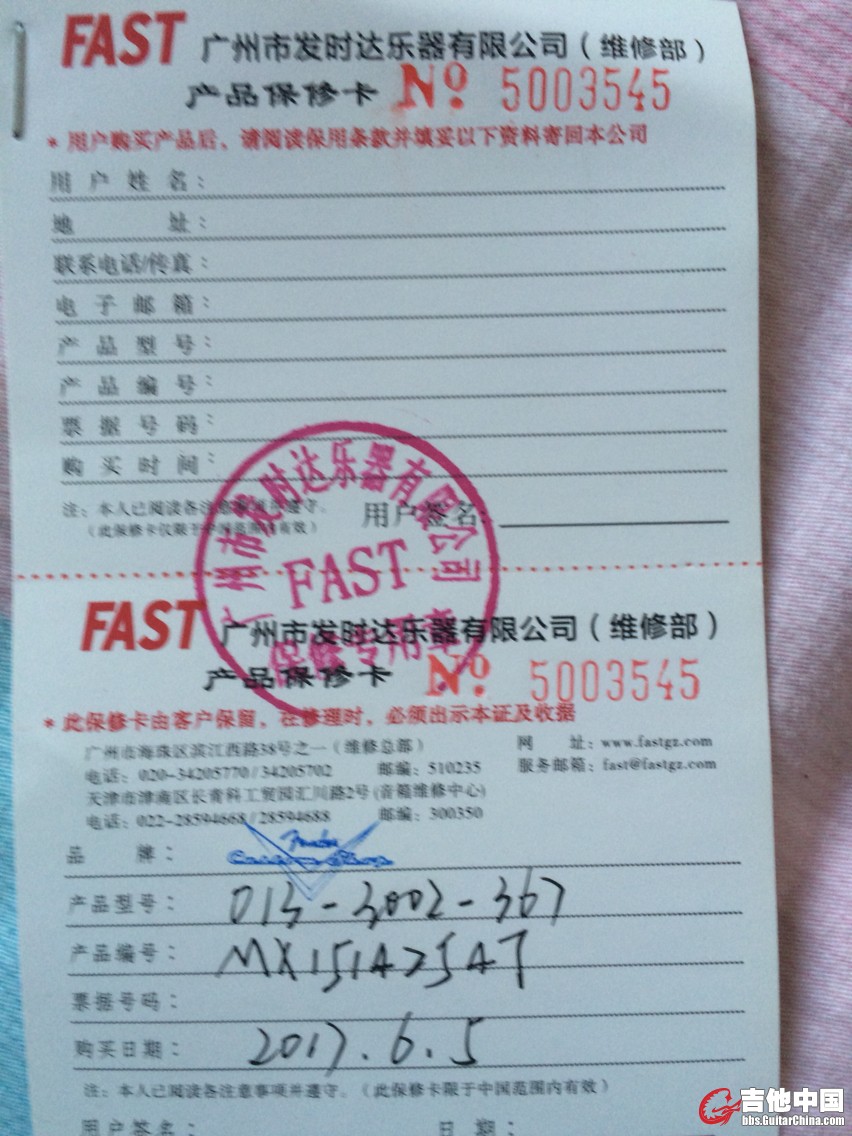 FAST 广州市发时达乐器有限公司（维修部）
产品保修卡 No 5003545
* 用户购买产品后，请阅读保用条款并填妥以下资料寄回本公司
用户姓名：
地址：
联系电话/传真：
电子邮箱：
产品型号：
产品编号：
票据号码：
购买时间：
注：本人已阅读各注意事项并遵守。
（此保修卡仅限于中国范围内有效） 用户签名：
广州市发时达乐器有限公司
FAST
保修专用章
FAST 广州市发时达乐器有限公司（维修部）
产品保修卡 No 5003545
* 此保修卡由客户保留，在修理时，必须出示本证及收据
广州市海珠区滨江西路38号之一（维修总部） 网址：www.fastgz.com
电话：020-34205770/34205702 邮编：510235 服务邮箱：fast@fastgz.com
天津市津南区长青科工贸园汇川路2号(音箱维修中心)
电话：022-28594668/28594688 邮编：300350
品牌： Fender
产品型号： 013-3002-367
产品编号： MX15142547
票据号码：
购买日期： 2017.6.5
注：本人已阅读各注意事项并遵守。（此保修卡限于中国范围内有效）
用户签名： 日期：
吉他中国
bbs.GuitarChina.com